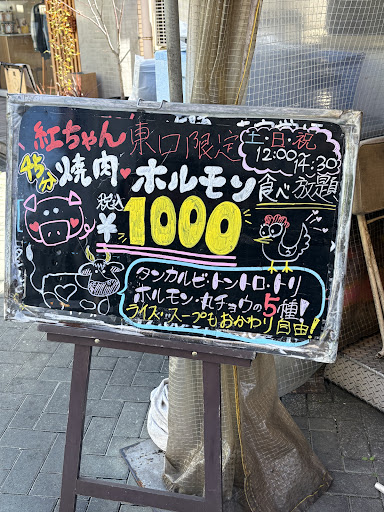 紅ちゃん 東口限定 土・日・祝
12:00〜14:30
45分 焼肉♥ホルモン食べ放題
税込
¥1000
タンカルビ・トントロ・トリ
ホルモン・丸チョウの5種!
ライス・スープもおかわり自由!